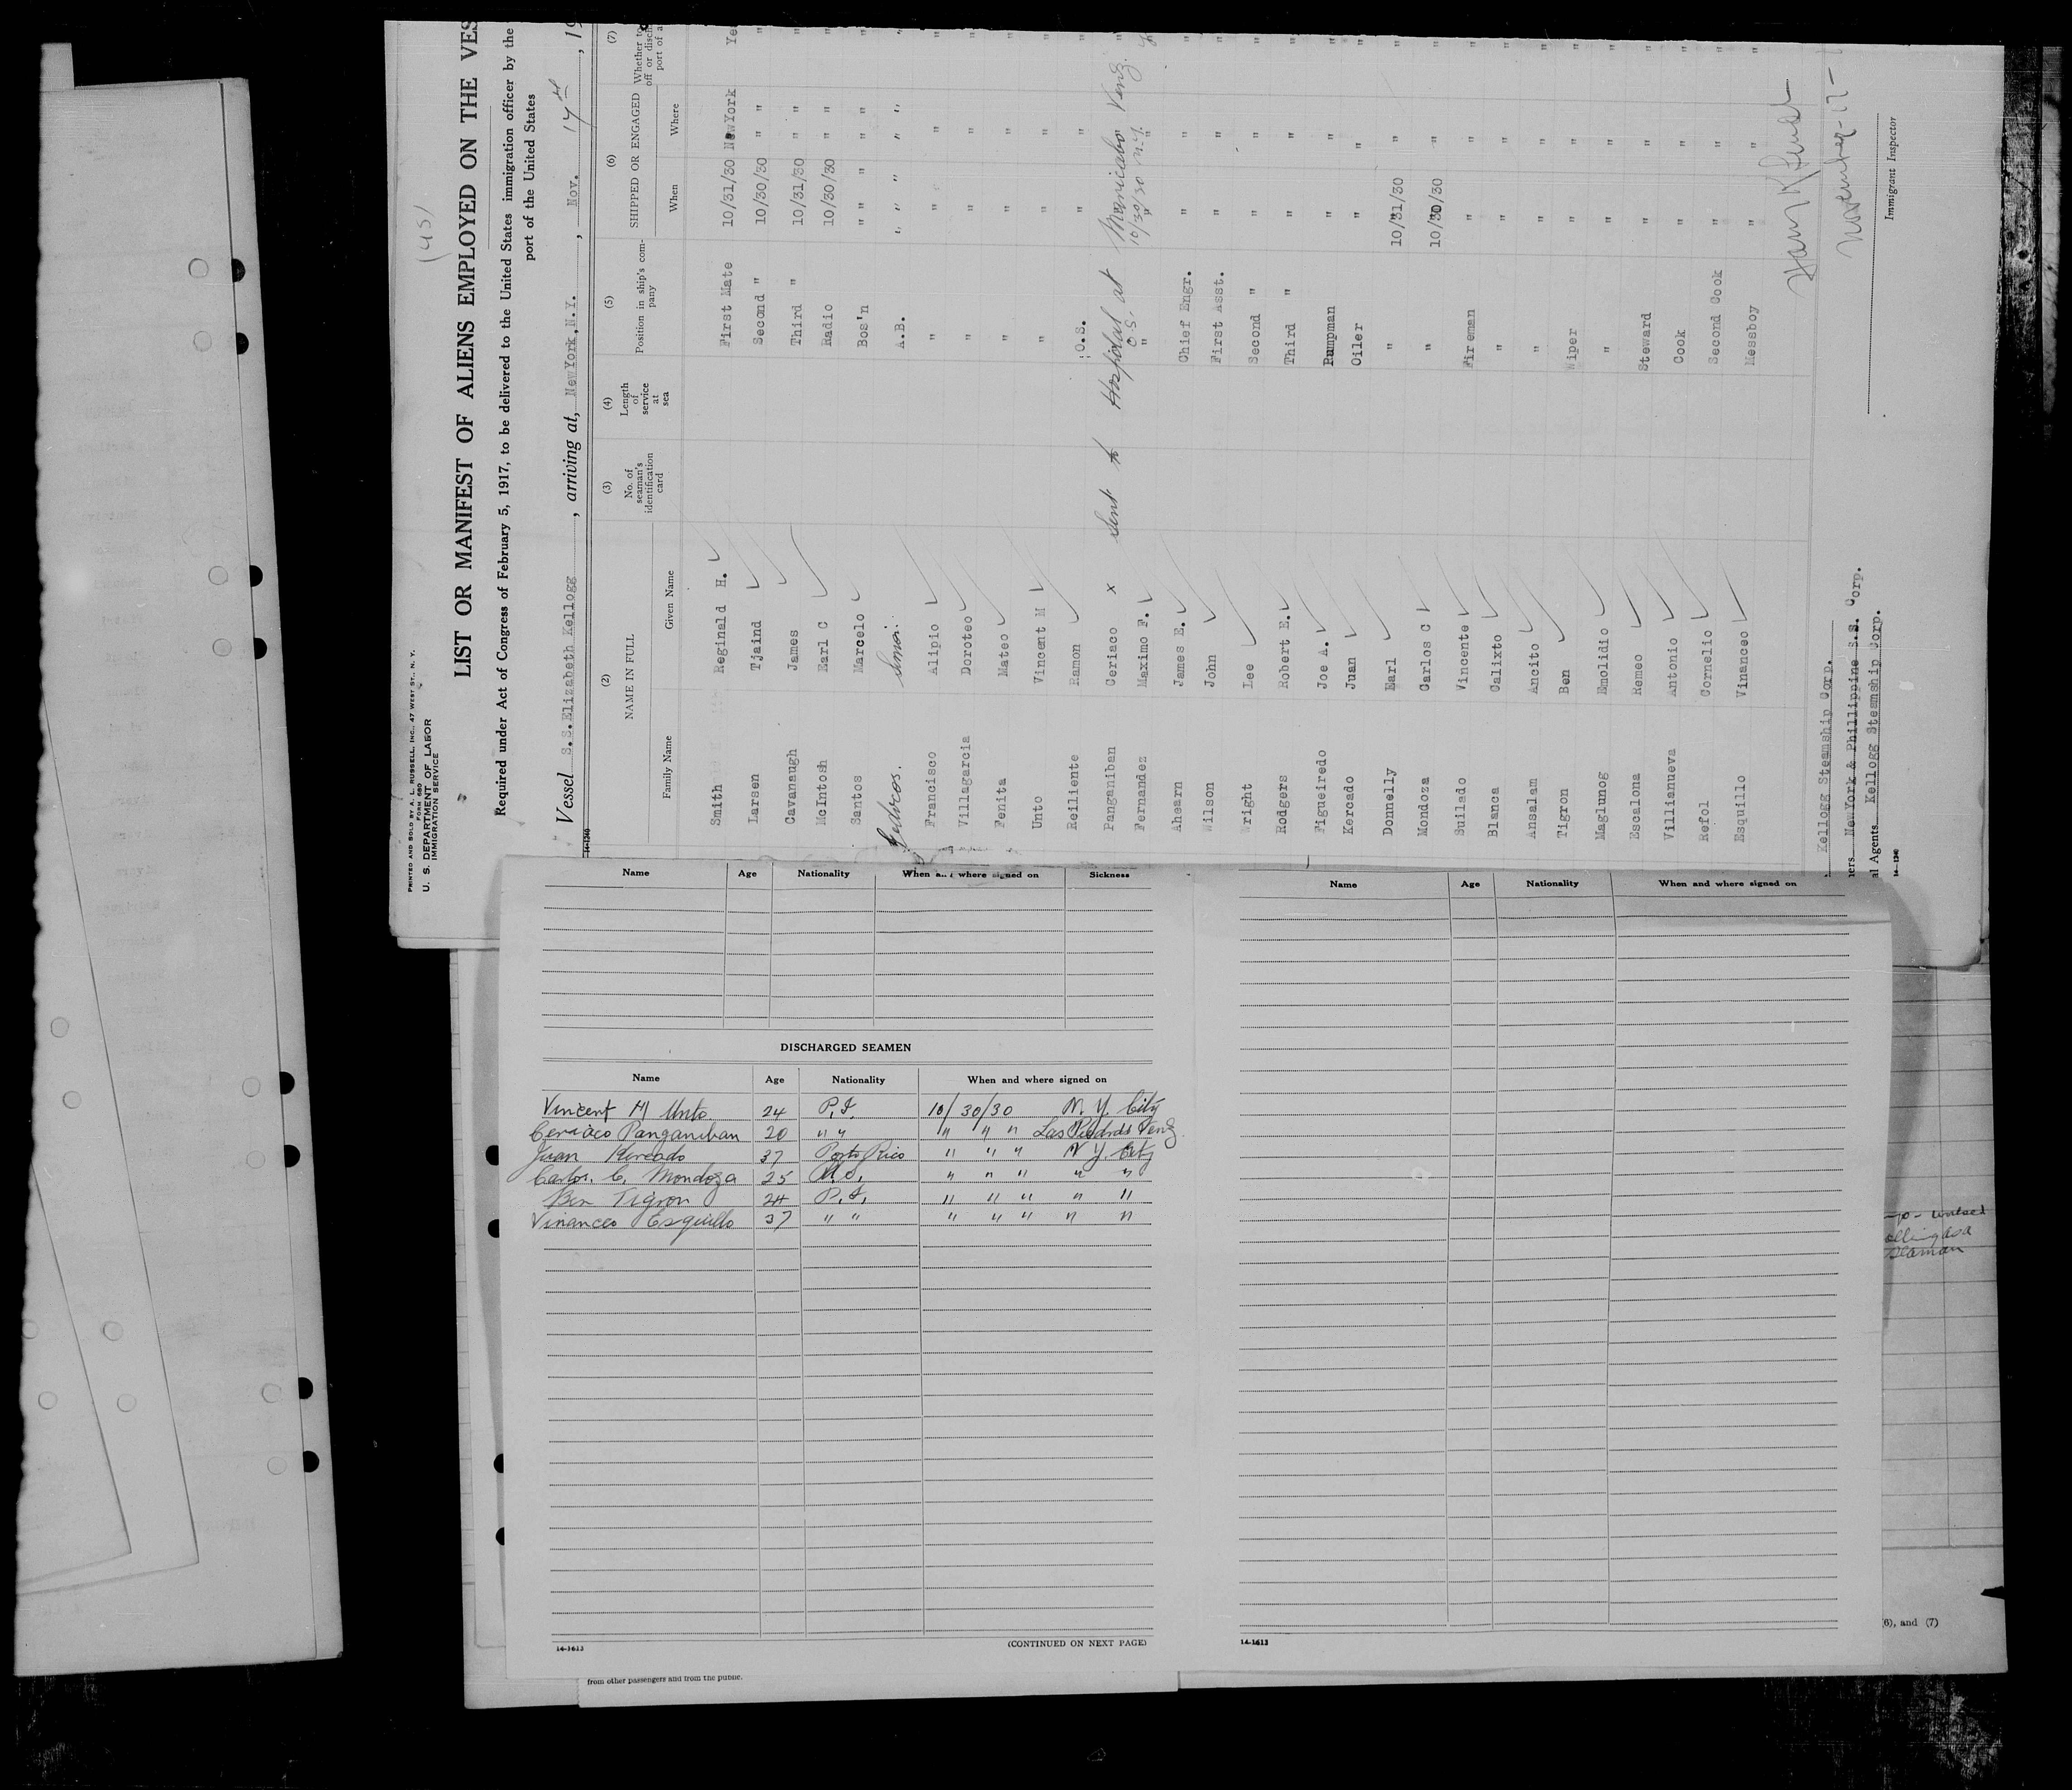 PRINTED AND SOLD BY A. L. RUSSELL, INC., 47 WEST ST., N. Y.
FORM 680
U. S. DEPARTMENT OF LABOR
IMMIGRATION SERVICE
(45)
LIST OR MANIFEST OF ALIENS EMPLOYED ON THE VES
Required under Act of Congress of February 5, 1917, to be delivered to the United States immigration officer by the
port of the United States
Vessel S.S.Elizabeth Kellogg, arriving at, NewYork,N.Y., Nov. 17th, 19
14-1240
(2) (3) (4) (5) (6) (7)
NAME IN FULL
Family Name Given Name
No. of seaman's identification card
Length of service at sea
Position in ship's company
SHIPPED OR ENGAGED
When Where
Whether to
off or disch
port of a
Smith Reginald H. First Mate 10/31/30 NewYork Ye
Larsen Tjaind Second " 10/30/30 " " "
Cavanaugh James Third " 10/31/30 " " "
McIntosh Earl C Radio 10/30/30 " " "
Santos Marcelo Bos'n " " " " "
A.B. " " " " "
Francisco Alipio " " " "
Villagarcia Doroteo " " " "
Fenita Mateo " " " "
Unto Vincent M " " " "
Reiliente Ramon O.S. " " "
Panganiban Ceriaco x Sent to Hospital at Maricaibo Venz. "
Fernandez Maximo F. " O.S. 10/30/30 N.Y. " "
Ahearn James E. Chief Engr. " " "
Wilson John First Asst. " " "
Wright Lee Second " " " "
Rodgers Robert E. Third " " " "
Figueiredo Joe A. Pumpman " " "
Kercado Juan Oiler " " "
Donnelly Earl " 10/31/30 " "
Mondoza Carlos C " 10/30/30 " "
Builado Vincente Fireman " " "
Blanca Calixto " " " "
Ansalam Ancito " " " "
Tigron Ben Wiper " " "
Maglunog Emolidio " " " "
Escalona Remeo Steward " " "
Villianueva Antonio Cook " " "
Refol Cornelio Second Cook " " "
Esquillo Vinanceo Messboy " " "
November-17-
Immigrant Inspector
Kellogg Steamship Corp.
ners NewYork & Phillippine S.S. Corp.
al Agents Kellogg Steamship Corp.
14-1240
Name Age Nationality When and where signed on Sickness
DISCHARGED SEAMEN
Name Age Nationality When and where signed on
Vincent M Unto. 24 P.I. 10/30/30 N.Y. City
Ceriaco Panganiban 20 " " " " " Las Piedras Venz
Juan Kercado 37 Porto Rico " " " N Y City
Carlos. C. Mondoza 25 " " " " "
Ben Tigron 24 P.I. " " " " "
Vinanceo Esquillo 37 " " " " " " "
14-1613
(CONTINUED ON NEXT PAGE)
from other passengers and from the public.
Name Age Nationality When and where signed on
14-1613
seaman
(6), and (7)